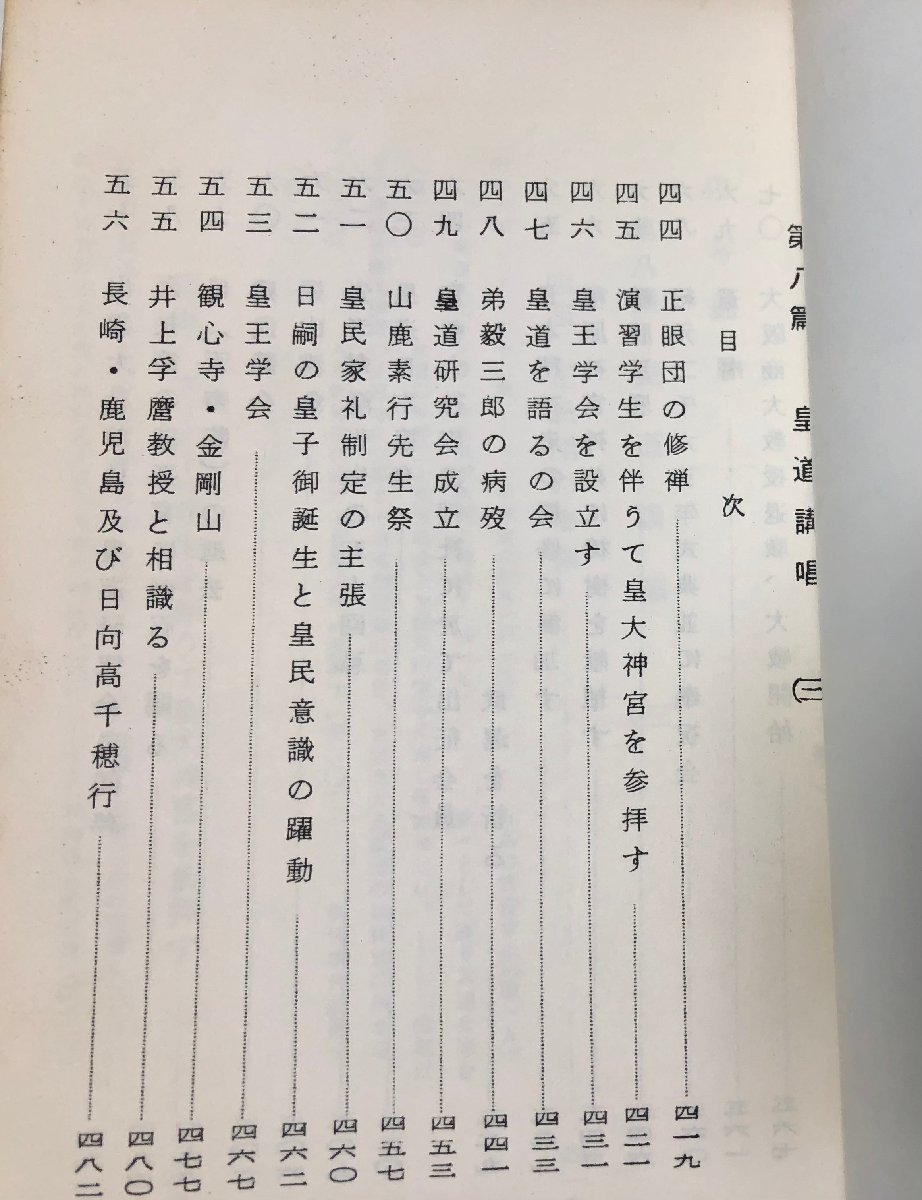 第八篇　皇道講唱（三
目次
四四　正眼団の修禅……四一九
四五　演習学生を伴うて皇大神宮を参拝す……四二一
四六　皇王学会を設立す……四三一
四七　皇道を語るの会……四三三
四八　弟毅三郎の病歿……四四一
四九　皇道研究会成立……四五三
五〇　山鹿素行先生祭……四五七
五一　皇民家礼制定の主張……四六〇
五二　日嗣の皇子御誕生と皇民意識の躍動……四六二
五三　皇王学会……四六七
五四　観心寺・金剛山……四七七
五五　井上孚麿教授と相識る……四八〇
五六　長崎・鹿児島及び日向高千穂行……四八二